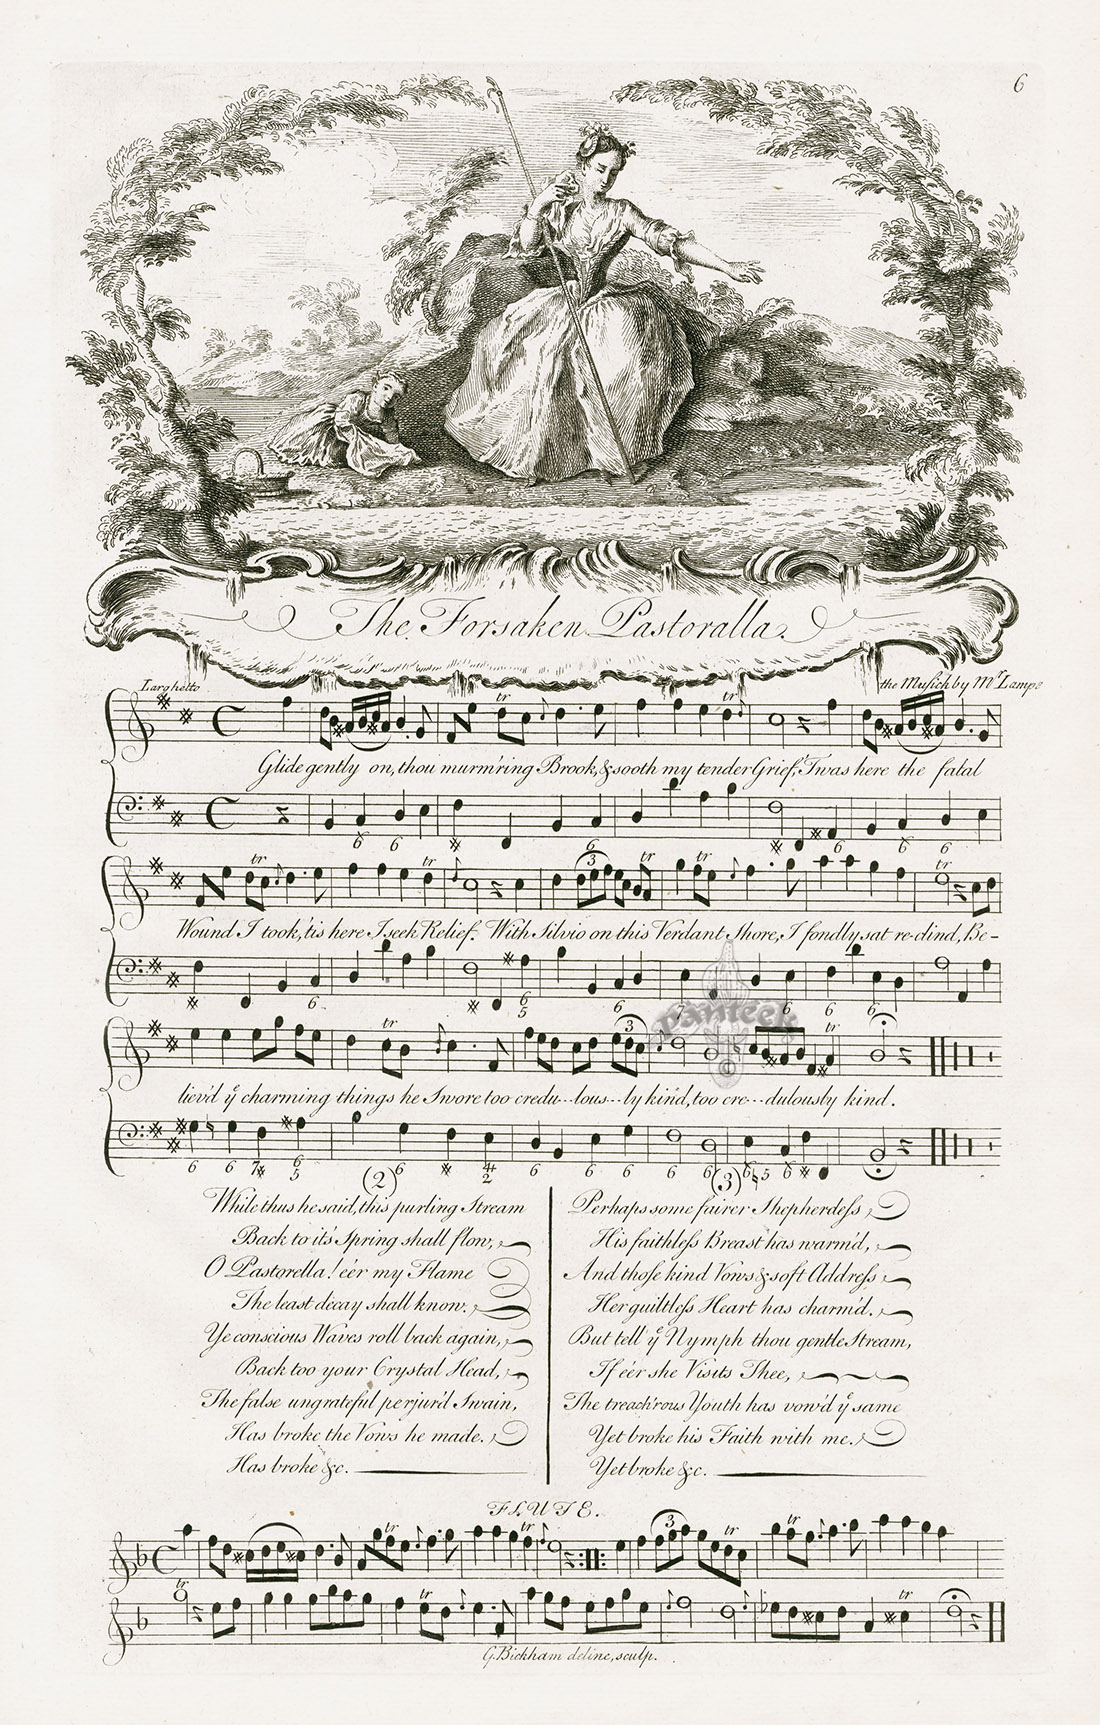 6
The Forsaken Pastoralla.
Larghetto
the Musick by Mr. Lampe
Glide gently on, thou murm'ring Brook, & sooth my tender Grief, 'Twas here the fatal
Wound I took, 'tis here I seek Relief. With Silvio on this Verdant Shore, I fondly sat re-clind, Be-
liev'd ye charming things he Swore too credu--lous--ly kind, too cre---dulously kind.
(2)
While thus he said, this purling Stream
Back to it's Spring shall flow,
O Pastorella! e'er my Flame
The least decay shall know.
Ye conscious Waves roll back again,
Back too your Crystal Head,
The false ungrateful perjur'd Swain,
Has broke the Vows he made.
Has broke &c.
(3)
Perhaps some fairer Shepherdeſs,
His faithleſs Breast has warm'd,
And thoſe kind Vows & soft Addreſs
Her guiltleſs Heart has charm'd.
But tell ye Nymph thou gentle Stream,
If e'er she Visits Thee,
The treach'rous Youth has vow'd ye same
Yet broke his Faith with me.
Yet broke &c.
FLUTE.
G. Bickham delinc, sculp.
panteek
©